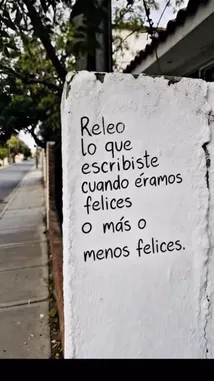 Releo
lo que
escribiste
cuando éramos
felices
o más o
menos felices.